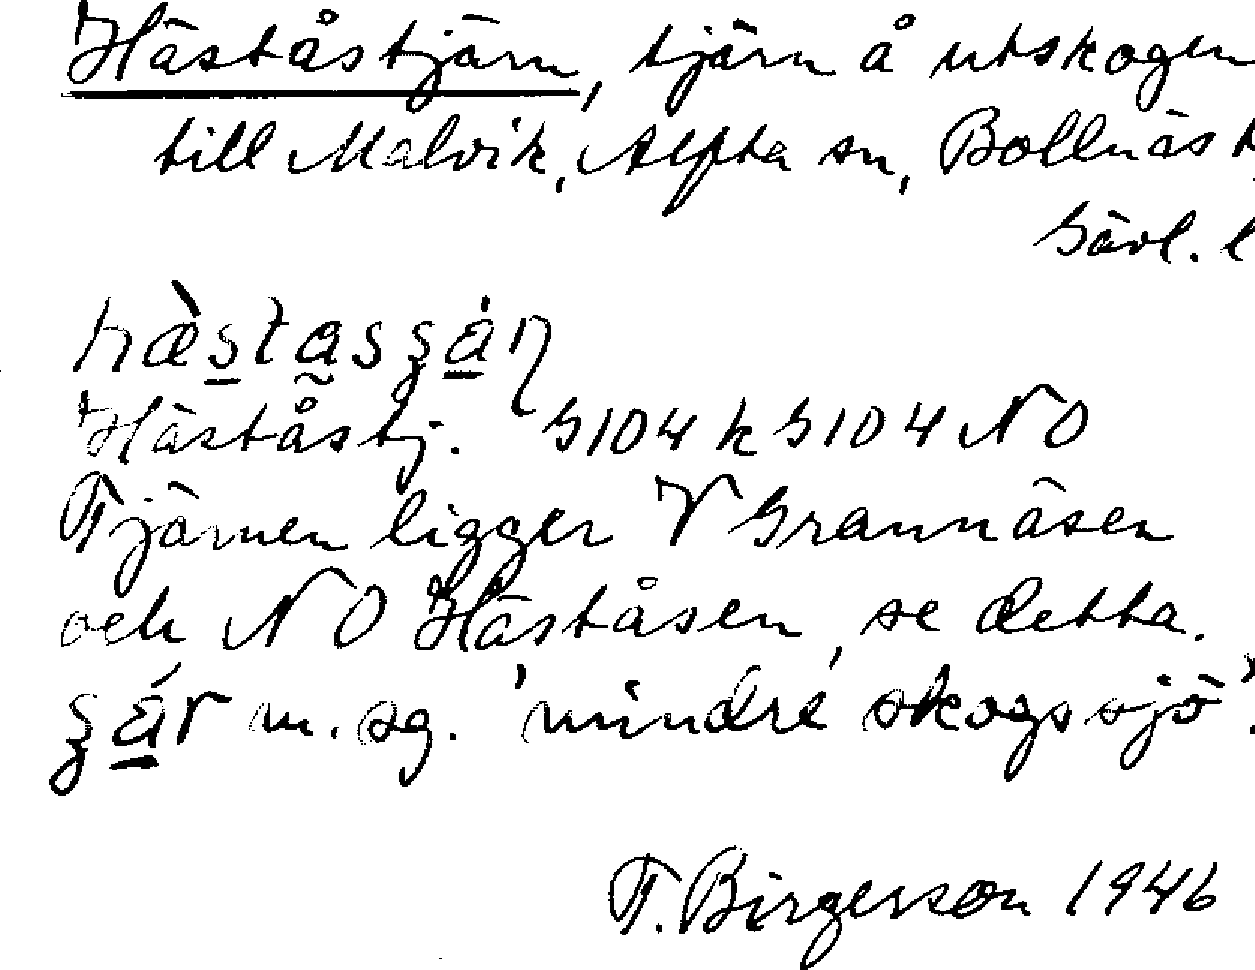 Häståstjärn, tjärn å utskogen
till Malvik, Alfta sn, Bollnäs t
Gävl. l
Häståstj. G104 k G104 NO
Tjärnen ligger V Grannäsen
och NO Häståsen, se detta.
m. sg. 'mindre skogssjö'.
T. Birgerson 1946